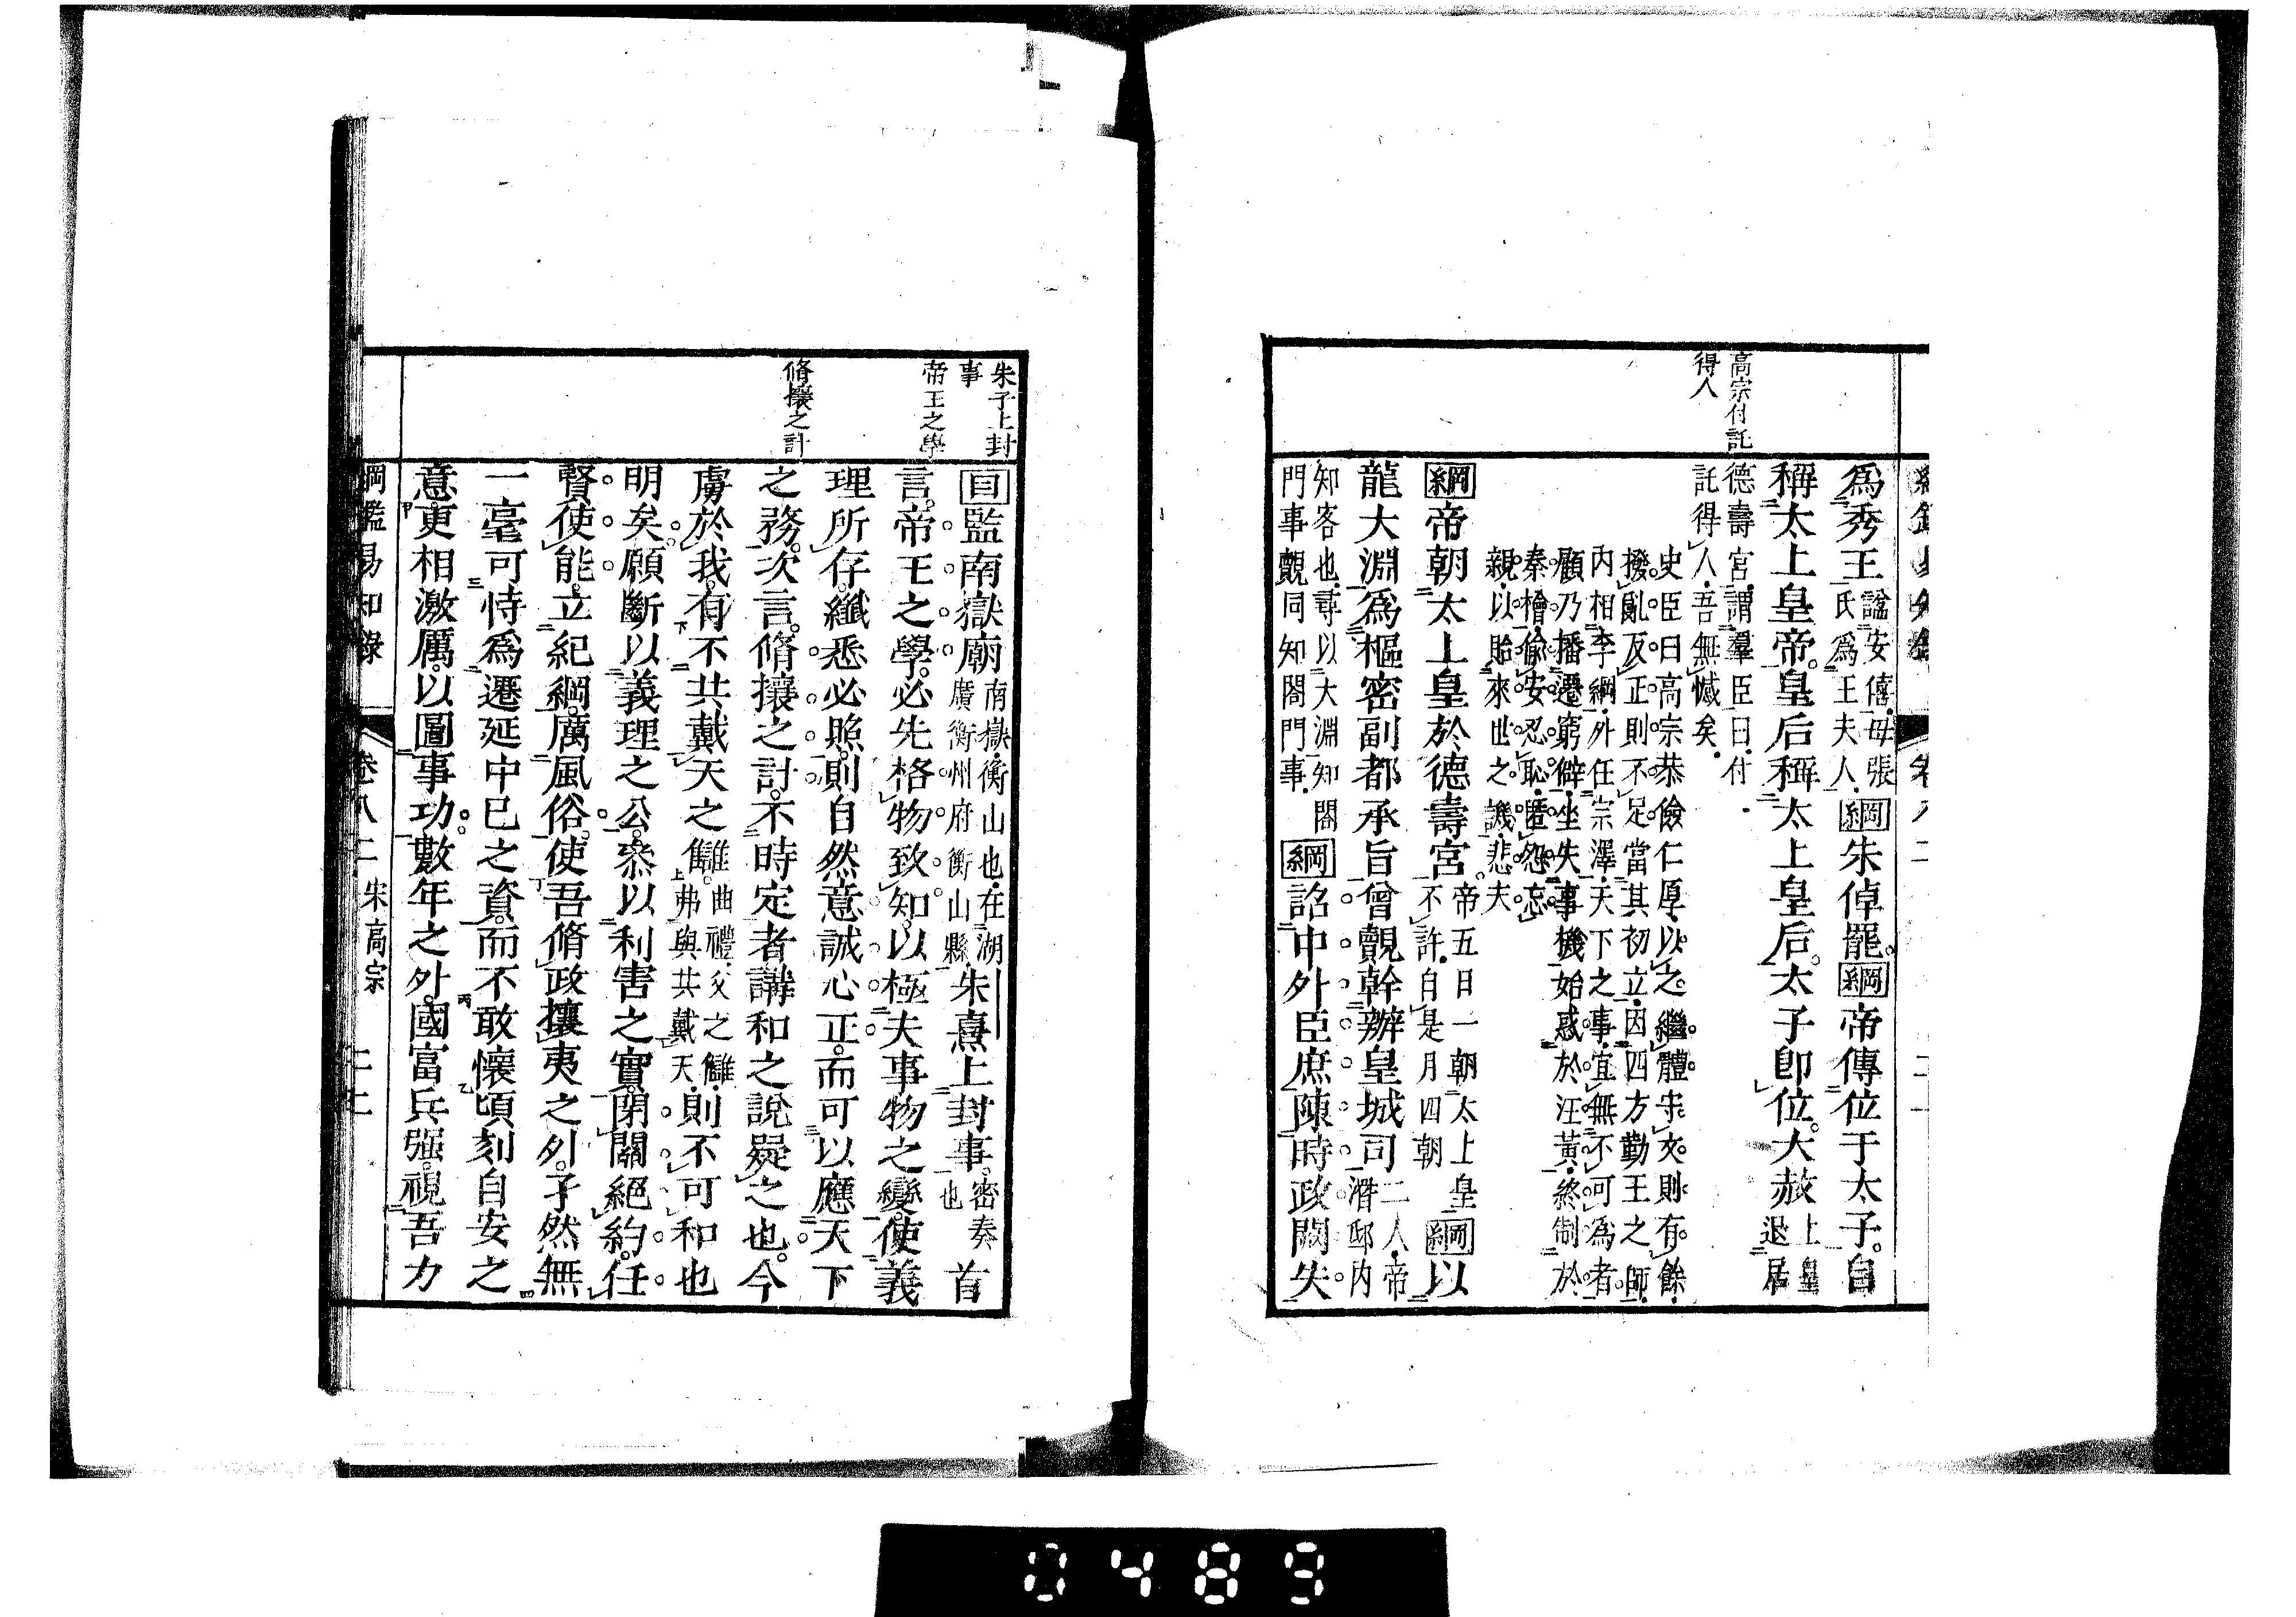 高宗付託
得人
爲秀王諡安僖母張氏爲王夫人綱朱倬罷綱帝傳位于太子自
稱太上皇帝皇后稱太上皇后太子卽位大赦上皇退居
德壽宮謂羣臣曰付託得人吾無憾矣
史臣曰高宗恭儉仁厚以之繼體守文則有餘
撥亂反正則不足當其初立因四方勤王之師
內相李綱外任宗澤天下之事宜無不可爲者
顧乃播遷窮僻坐失事機始惑於汪黃終制於
秦檜偸安忍恥匿怨忘
親以貽來世之譏悲夫
綱帝朝太上皇於德壽宮帝五日一朝太上皇不許自是月四朝綱以
龍大淵爲樞密副都承旨曾覿幹辦皇城司二人帝潛邸內
知客也尋以大淵知閤門事覿同知閤門事綱詔中外臣庶陳時政闕失
朱子上封
事
帝王之學
脩攘之計
目監南嶽廟南嶽衡山也在湖廣衡州府衡山縣朱熹上封事密奏也首
言帝王之學必先格物致知以極夫事物之變使義
理所存纖悉必照則自然意誠心正而可以應天下
之務次言脩攘之計不時定者講和之說疑之也今
虜於我有不共戴天之讎讎曲禮父之讎弗與共戴天則不可和也
明矣願斷以義理之公參以利害之實閉關絕約任
賢使能立紀綱厲風俗使吾脩政攘夷之外孑然無
一毫可恃爲遷延中已之資而不敢懷頃刻自安之
意更相激厲以圖事功數年之外國富兵强視吾力
綱鑑易知錄 卷八二 宋高宗 二二